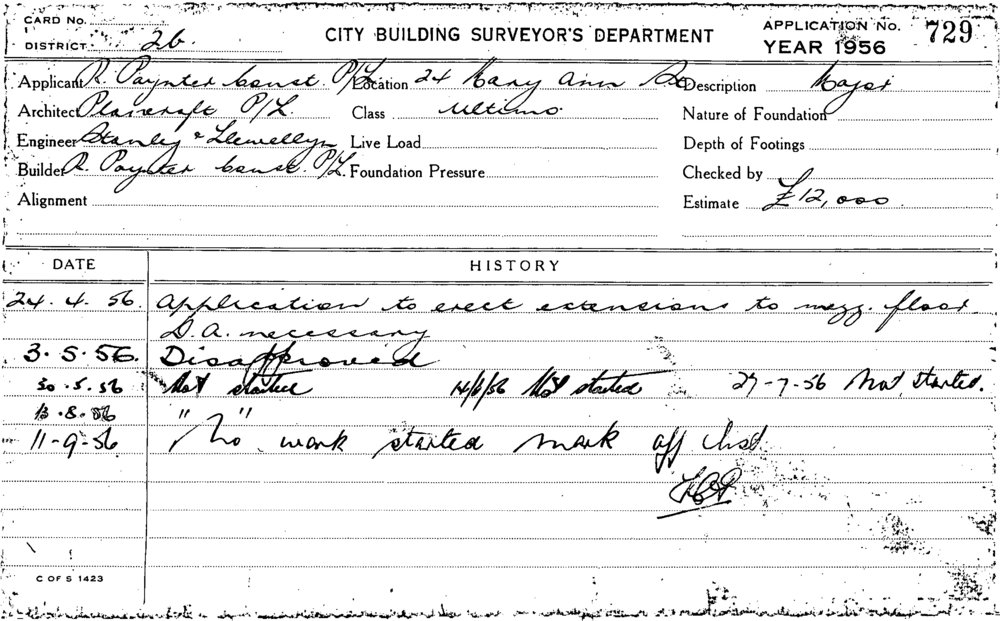 CARD No.
DISTRICT 26.
CITY BUILDING SURVEYOR'S DEPARTMENT
APPLICATION No. 729
YEAR 1956
Applicant R. Paynter Const. P/L. Location 24 Mary Ann St Description Major
Architect Plancraft P/L. Class Ultimo. Nature of Foundation
Engineer Stanley & Llewellyn Live Load Depth of Footings
Builder R. Paynter Const. P/L. Foundation Pressure Checked by
Alignment Estimate £12,000
DATE HISTORY
24. 4. 56. Application to erect extensions to mezz. floor
D.A. necessary
3. 5. 56. Disapproved
30. 5. 56 Not started 14/6/56 Not started 27-7-56 Not started.
13. 8. 56 " "
11-9-56 No work started mark off
C OF S 1423